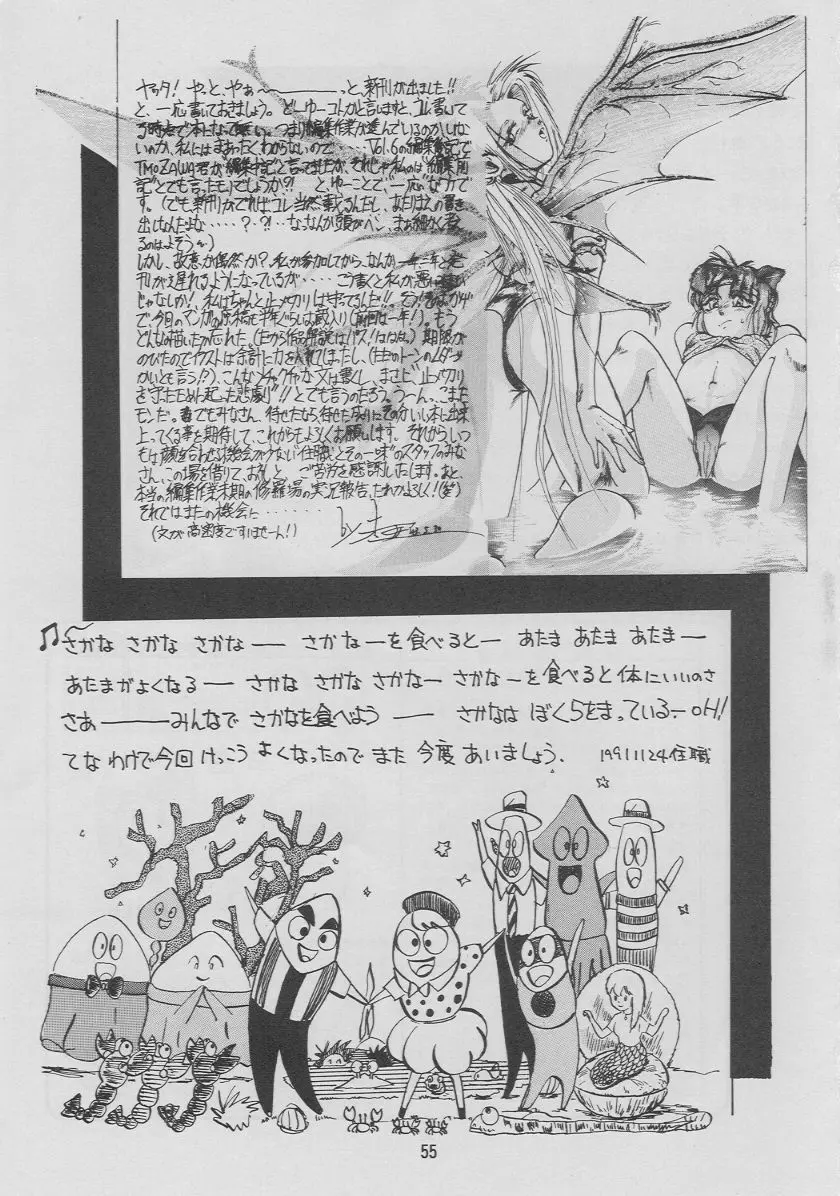 ヤッタ! やっと、やぁ〜〜っと、新刊が出ました!!
と、一応書いておきましょう。どーゆーコトかと言いますと、コレ書いて
る時点で本になって無い。つまり編集作業が進んでいるのかいない
のか、私にはまぁったくわからないので‥‥‥Vol.6の編集後記で
TMOZAWA君が"編集中記"と言ってましたが、それじゃ私のは"編集前
記"とでも言ったモノでしょうか?! とゆーことで、一応なワケで
す。(でも新刊がでればコレ当然載るんだし、あたりまえの書き
出しなんだよな‥‥‥?・?!‥なっなんか頭がヘン、まぁ細かく考え
るのはよそうっと)
しかし、故意か偶然か?、私が参加してから、なんか一年に一年と発
刊が遅れるようになっているが‥‥‥こう書くと私が悪い
じゃなしか!、私はちゃんと〆メ切りは守ってるんだ!!
で、今回のマンガの原稿も半年ぐらいは蔵入り(前回は一年!)。もう
どんなの描いたか忘れた(だから作品解説はパス!はははっ)期限が
のびたのでイラストは余計に力を入れてしまったし、(ただのトーンのムダ
かいとも言う?)、こんなメチャクチャな文は書くし、まさに"〆メ切り
を守ったために起った悲劇"!!とでも言うのだろう。う〜ん、こまった
モンだ。までもみなさん、待せたなら、待せたなりにそのかいい本に出来
上ってくる事を期待して、これからもよろしくお願いします。それから、いつ
もは顔を合わせる機会が少ない"住職とその一味"のスタッフのみな
さん、この場を借りて、お礼と、ご苦労を感謝いたします。あと、
本当の編集作業末期の修羅場の実況報告、だれかよろしく!(笑)
それではまたの機会に‥‥‥‥‥
(文が高密度ですいませーん!)
by
♫〜さかな さかな さかなー さかなーを食べるとー あたま あたま あたまー
あたまがよくなるー さかな さかな さかなー さかなーを食べると体にいいのさ
さぁーーーみんなで さかなを食べよう ー さかなは ぼくらをまっているーOH!
てな わけで今回 けっこう よくなったので また 今度 あいましょう. 19911124住職
55